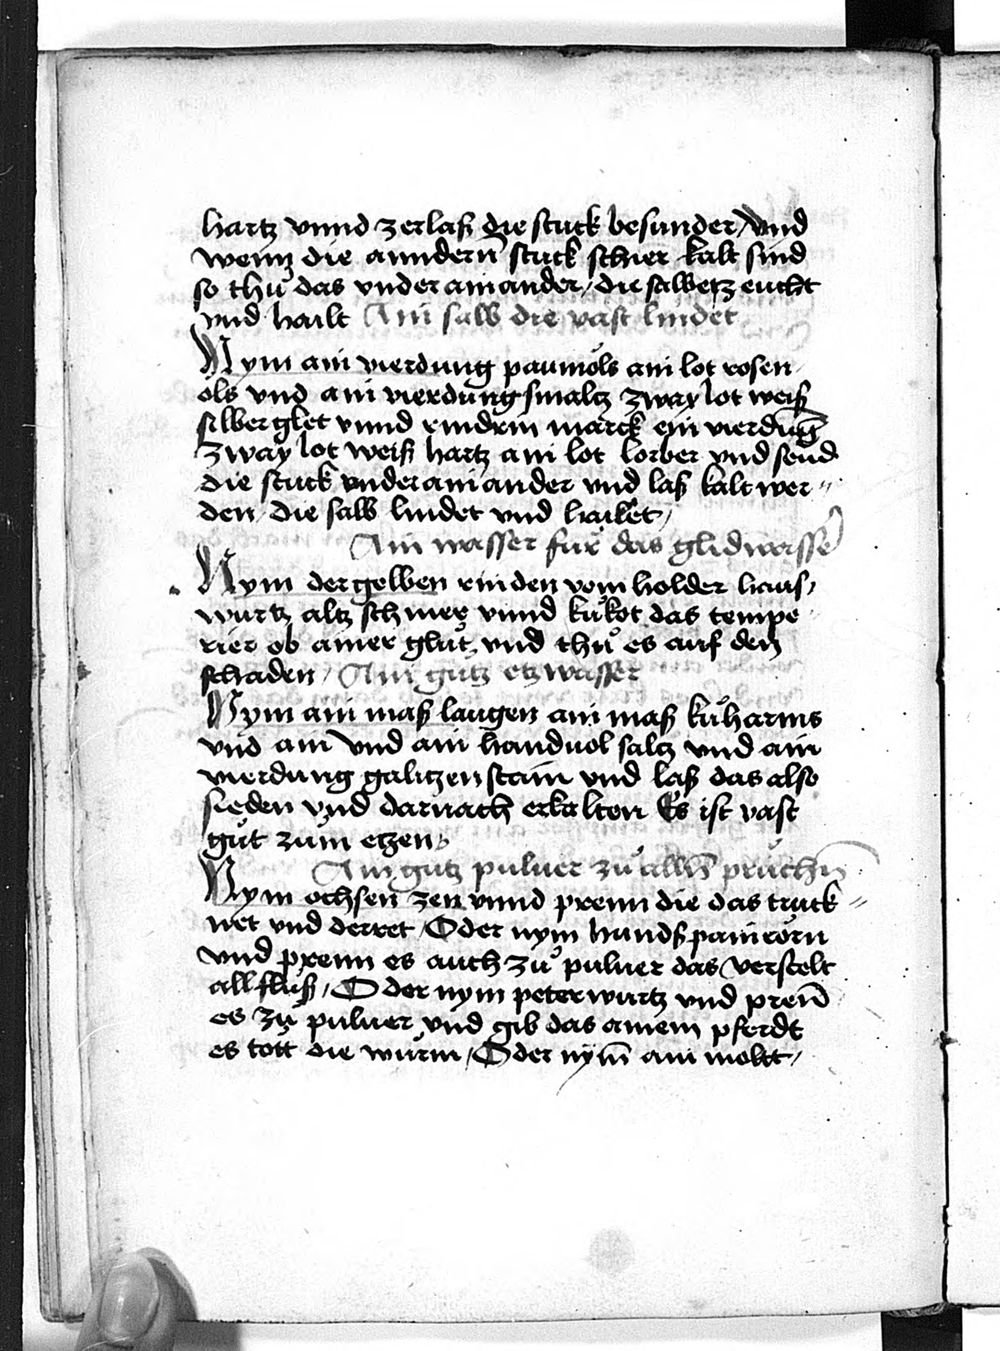 hartz vnnd zerlaß die stuck besunder / vnd
wenn die anndern stuck schier kalt sind
so thů das vnder ainander / die salb etz eucht
vnd hailt Ain salb die vast lindet
Nym ain vierdung paumöls ain lot rosen
öls vnd ain vierdung smaltz zway lot weiß
silberglet vnnd rindrin marck ein vierdung̅
zway lot weiß hartz ain lot lorber vnd seud
die stuck vnder ainander vnd laß kalt wer〃
den / die salb lindet vnd hailet /
Ain wasser für das glidwasse͛
Nym der gelben rinden vom holder haus /
wurtz altz schmer vnnd kůkot das tempe
rier ob ainer glůt vnd thů es auf den
schaden / Ain gůtz etzwasser
Nym ain maß laugen ain maß kůharms
vnd ain vnd ain handuol saltz vnd ain
vierdung galitzenstain vnd laß das also
sieden vnd darnach erkalten Es ist vast
gůt zům etzen
Ain gutz puluer zů allen̅ průchn̅
Nym ochsen zen vnnd prenn die das truck〃
net vnd derret Oder nym hundßpain rörn
vnd prenn es auch zů puluer das verstelt
all flüß / Oder nym peterwurtz vnd pren̅
es zů puluer vnd gib das ainem pferdt
es tött die würm / Oder nym̅ ain moltt /